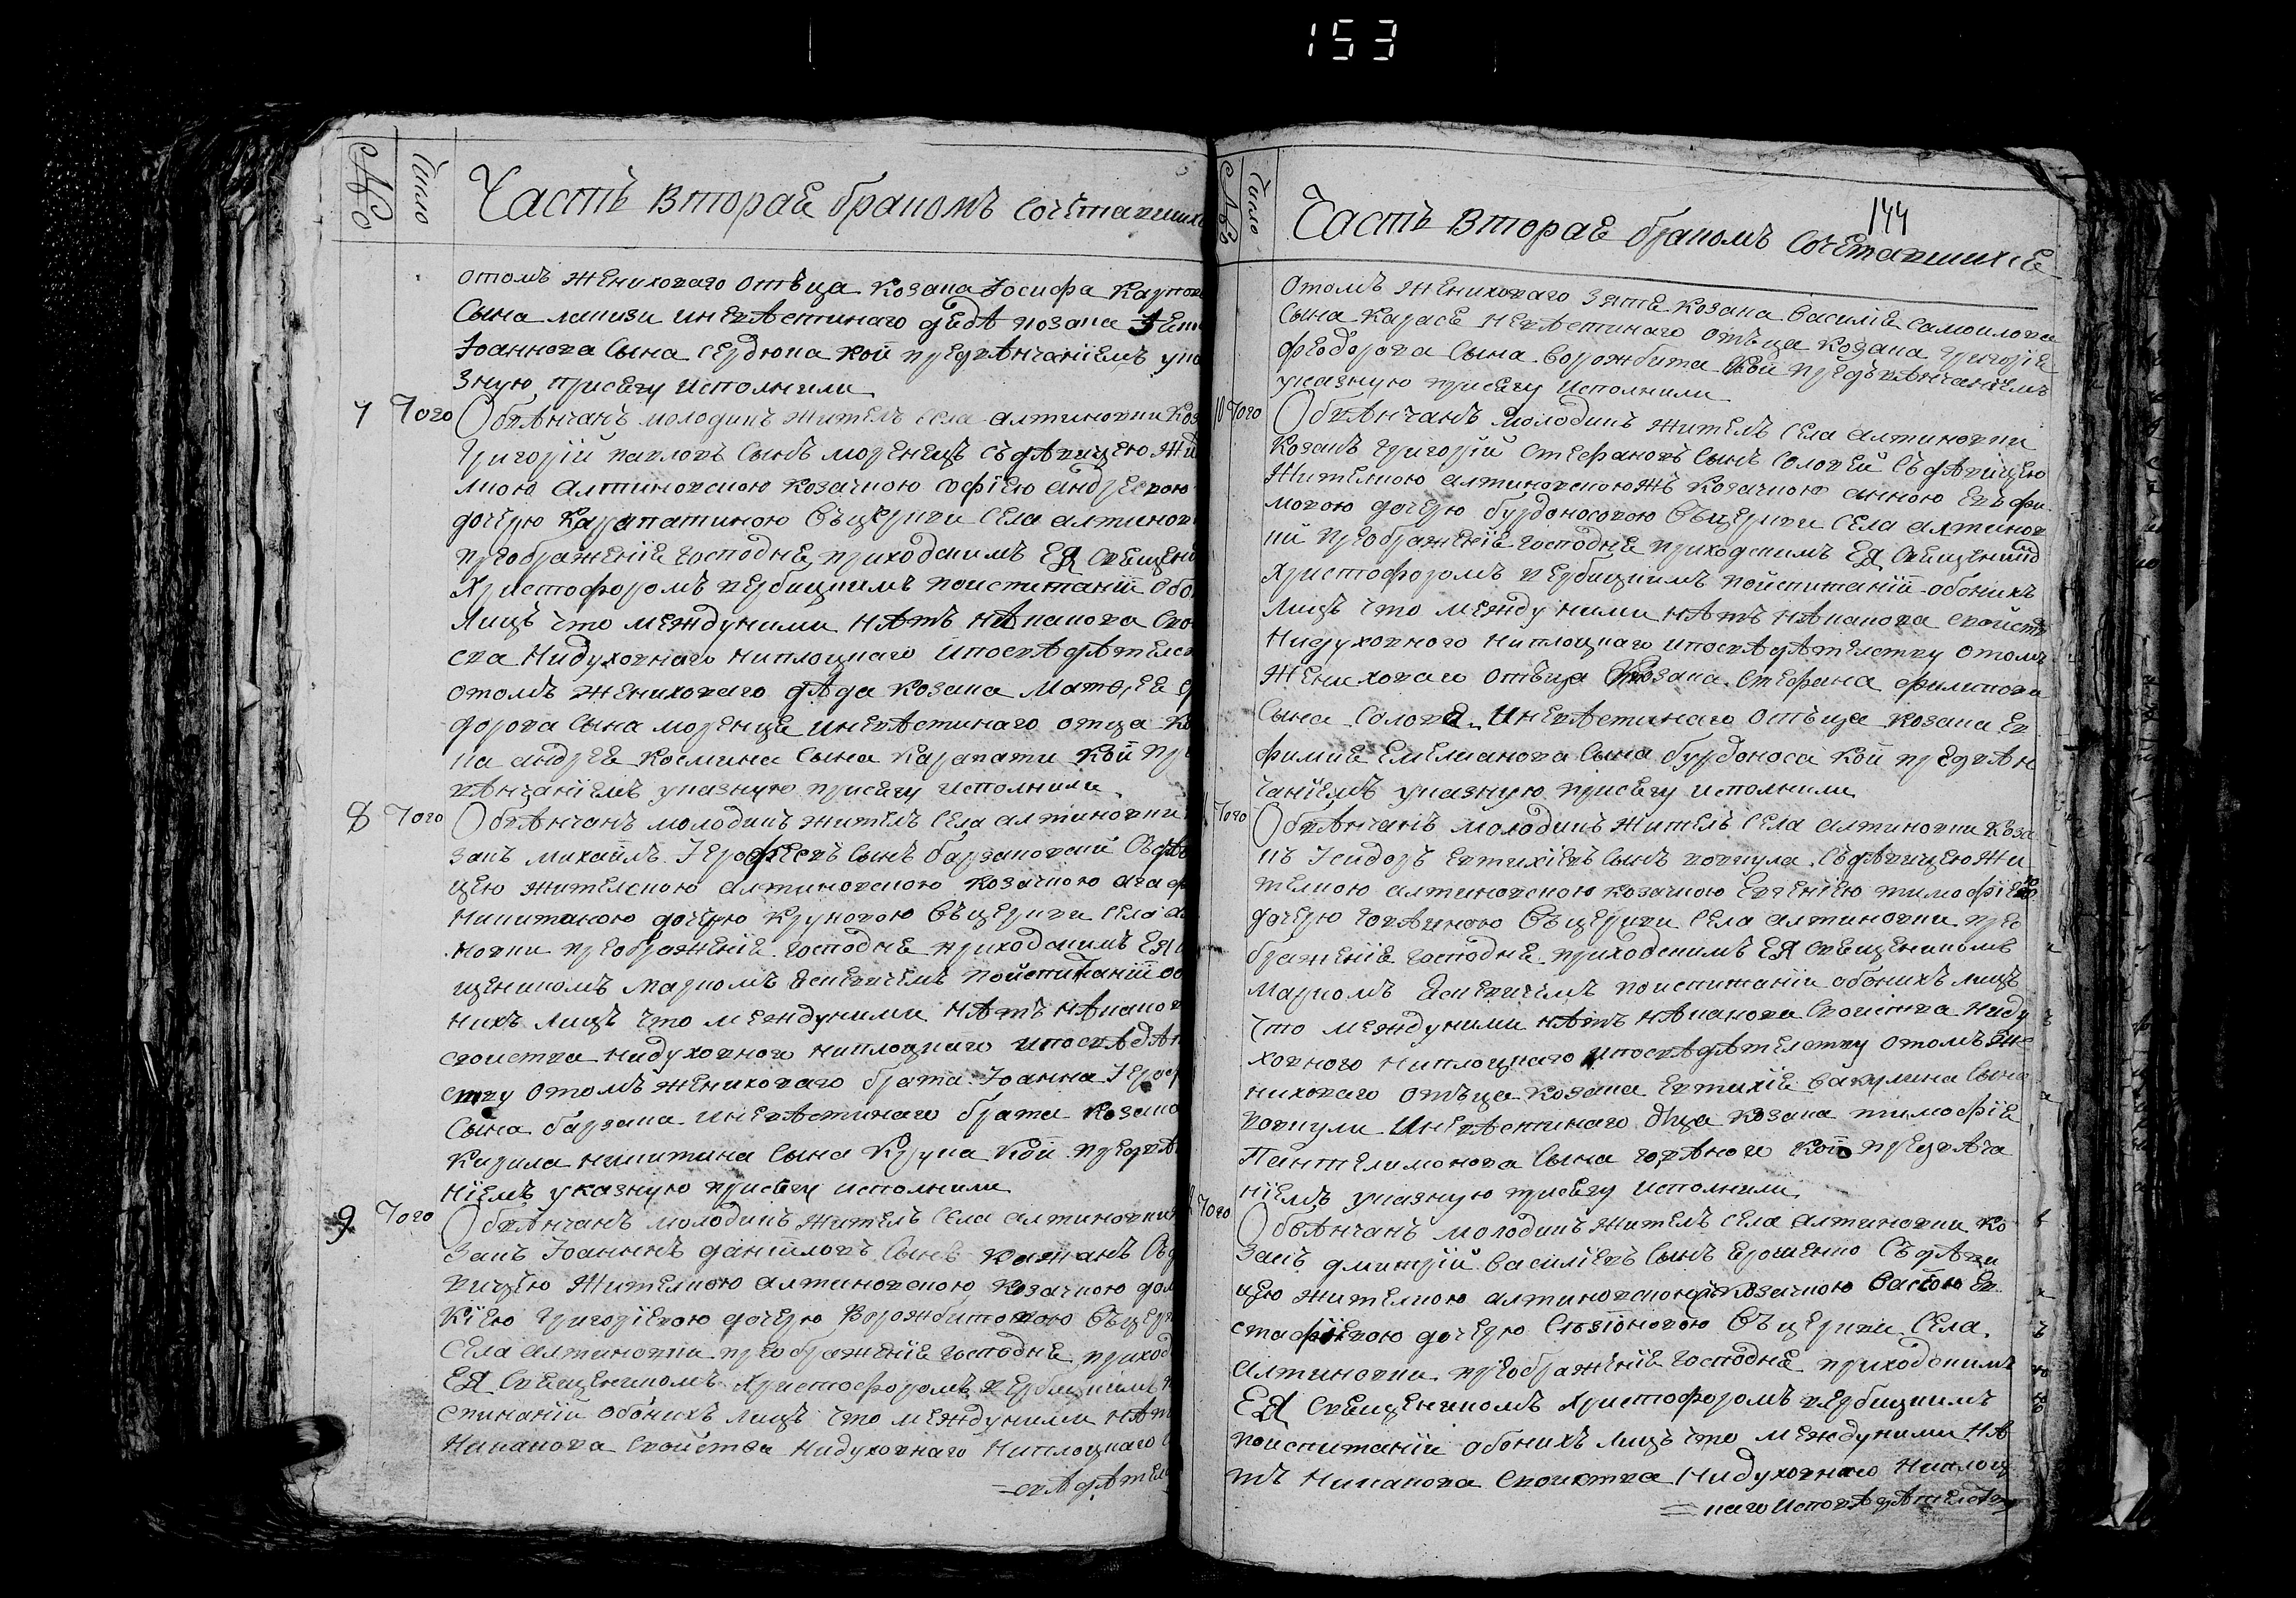 153
№
Число
Часть вторая браком сочетавшихс
отомъ жениховаго отъца козака Іосифа Карпов
сына лапизи иневѣстинаго дѣда козака
Іоаннова сына сердюка кои предвѣнчаніемъ ука
зную присягу исполнили
7 Того Обвѣнчанъ молодикъ житель села алтиновки коз
Григорій павловъ сынъ моренецъ съдѣвицею жит
лкою алтиновскою козачкою софіею андреевою
дочерю карапатиною въцеркви села алтинов
преображенія господня приходскимъ ея священ
Христофоромъ вербицкимъ поиспитаніи обо
лицъ что междуними нѣтъ нѣкакова сво
ства нидуховнаго ниплоцкаго ипосвѣдѣтелс
отомъ жениховаго дѣда козака Матфея фе
дорова сына моренця иневѣстинаго отца ко
ка андрея космина сына карапати кои пре
вѣнчаніемъ указную присягу исполнили
8 Того Обвѣнчанъ молодикъ житель села алтиновки
закъ михаилъ Іерофеевъ сынъ барзаковский съдѣв
цею жителкою алтиновскою козачкою агаф
никитиною дочерю круповою въцеркви села ал
новки преображенія господня приходскимъ ея с
щеникомъ маркомъ поиспитаніи об
нихъ лицъ что междуними нѣтъ нѣкаков
своиства нидуховного ниплоцкаго ипосвѣдѣт
ству отомъ жениховаго брата Іоанна Іероф
сына барзака иневѣстинаго брата козака
Кирила никитина сына Крупа кои предвѣ
ніемъ указную присягу исполнили
9 Того Обвѣнчанъ молодикъ житель села алтиновки
закъ Іоаннъ даніиловъ сынъ кажанъ съд
вицею жителкою алтиновскою козачкою дом
кіею григоріевою дочерю ворожбитовою въцерк
села алтиновки преображенія господня приход
ея священикомъ Христофоромъ вербицкимъ п
спитаніи обоихъ лицъ что междуними нѣт
никакова свойства нидуховнаго ниплоцкаго
=свѣдѣтел
№
Число
144
Часть вторая браком сочетавшихся
отомъ жениховаго зятя козака василія самоилова
сына карася невѣстинаго отъца козака григорія
феодорова сына ворожбита кои предъвѣнчаніемъ
указную присягу исполнили
10 Того Обвѣнчанъ молодикъ житель села алтиновки
козакъ григорій стефановъ сынъ соловей съдѣвицею
жителкою алтиновскоюжъ козачкою анною евфи
мовою дочерю бурдоносовою въцеркви села алтинов
ки преображенія господня приходскимъ ея священико
христофоромъ вербицкимъ поиспитаніи обоихъ
лицъ что между ними нѣтъ нѣкакова свойств
нидуховного ниплоцкаго ипосвѣдѣтелству отомъ
жениховаго отъца козака стефана филипова
сына соловя иневѣстинаго отъца козака ев
фимия емелианова сына бурдоноса кои предвѣн
чаніемъ указную присягу исполнили
Того Обвѣнчанъ молодикъ житель села алтиновки коза
къ Ісидоръ евтихіевъ сынъ вовкула съдѣвицею жи
телкою алтиновскою козачкою евгеніею тимофіев
дочерю въцеркви села алтиновки прео
браженія господня приходскимъ ея священикомъ
маркомъ поиспитаніи обоихъ лицъ
что междуними нѣтъ нѣкакова своиства ниду
ховного ниплоцкаго ипосвѣдѣтелству отомъ же
ниховаго отъца козака евтихія вакулина сына
вовкули иневѣстинаго отца козака тимофія
Пантелимонова сына кои предвѣнча
ніемъ указную присягу исполнили
Того Обвѣнчанъ молодикъ житель села алтиновки ко
закъ дмитрій василіевъ сынъ ерошенко съдѣви
цею жителкою алтиновскою козачкою васою ев
стафіевою дочерю въцеркви села
алтиновки преображенія господня приходскимъ
ея священикомъ христофоромъ вербицкимъ
поиспитаніи обоихъ лицъ что междуними нѣ
тъ никакова своиства нидуховнаго ниплоц
=каго ипосвѣдѣтелству